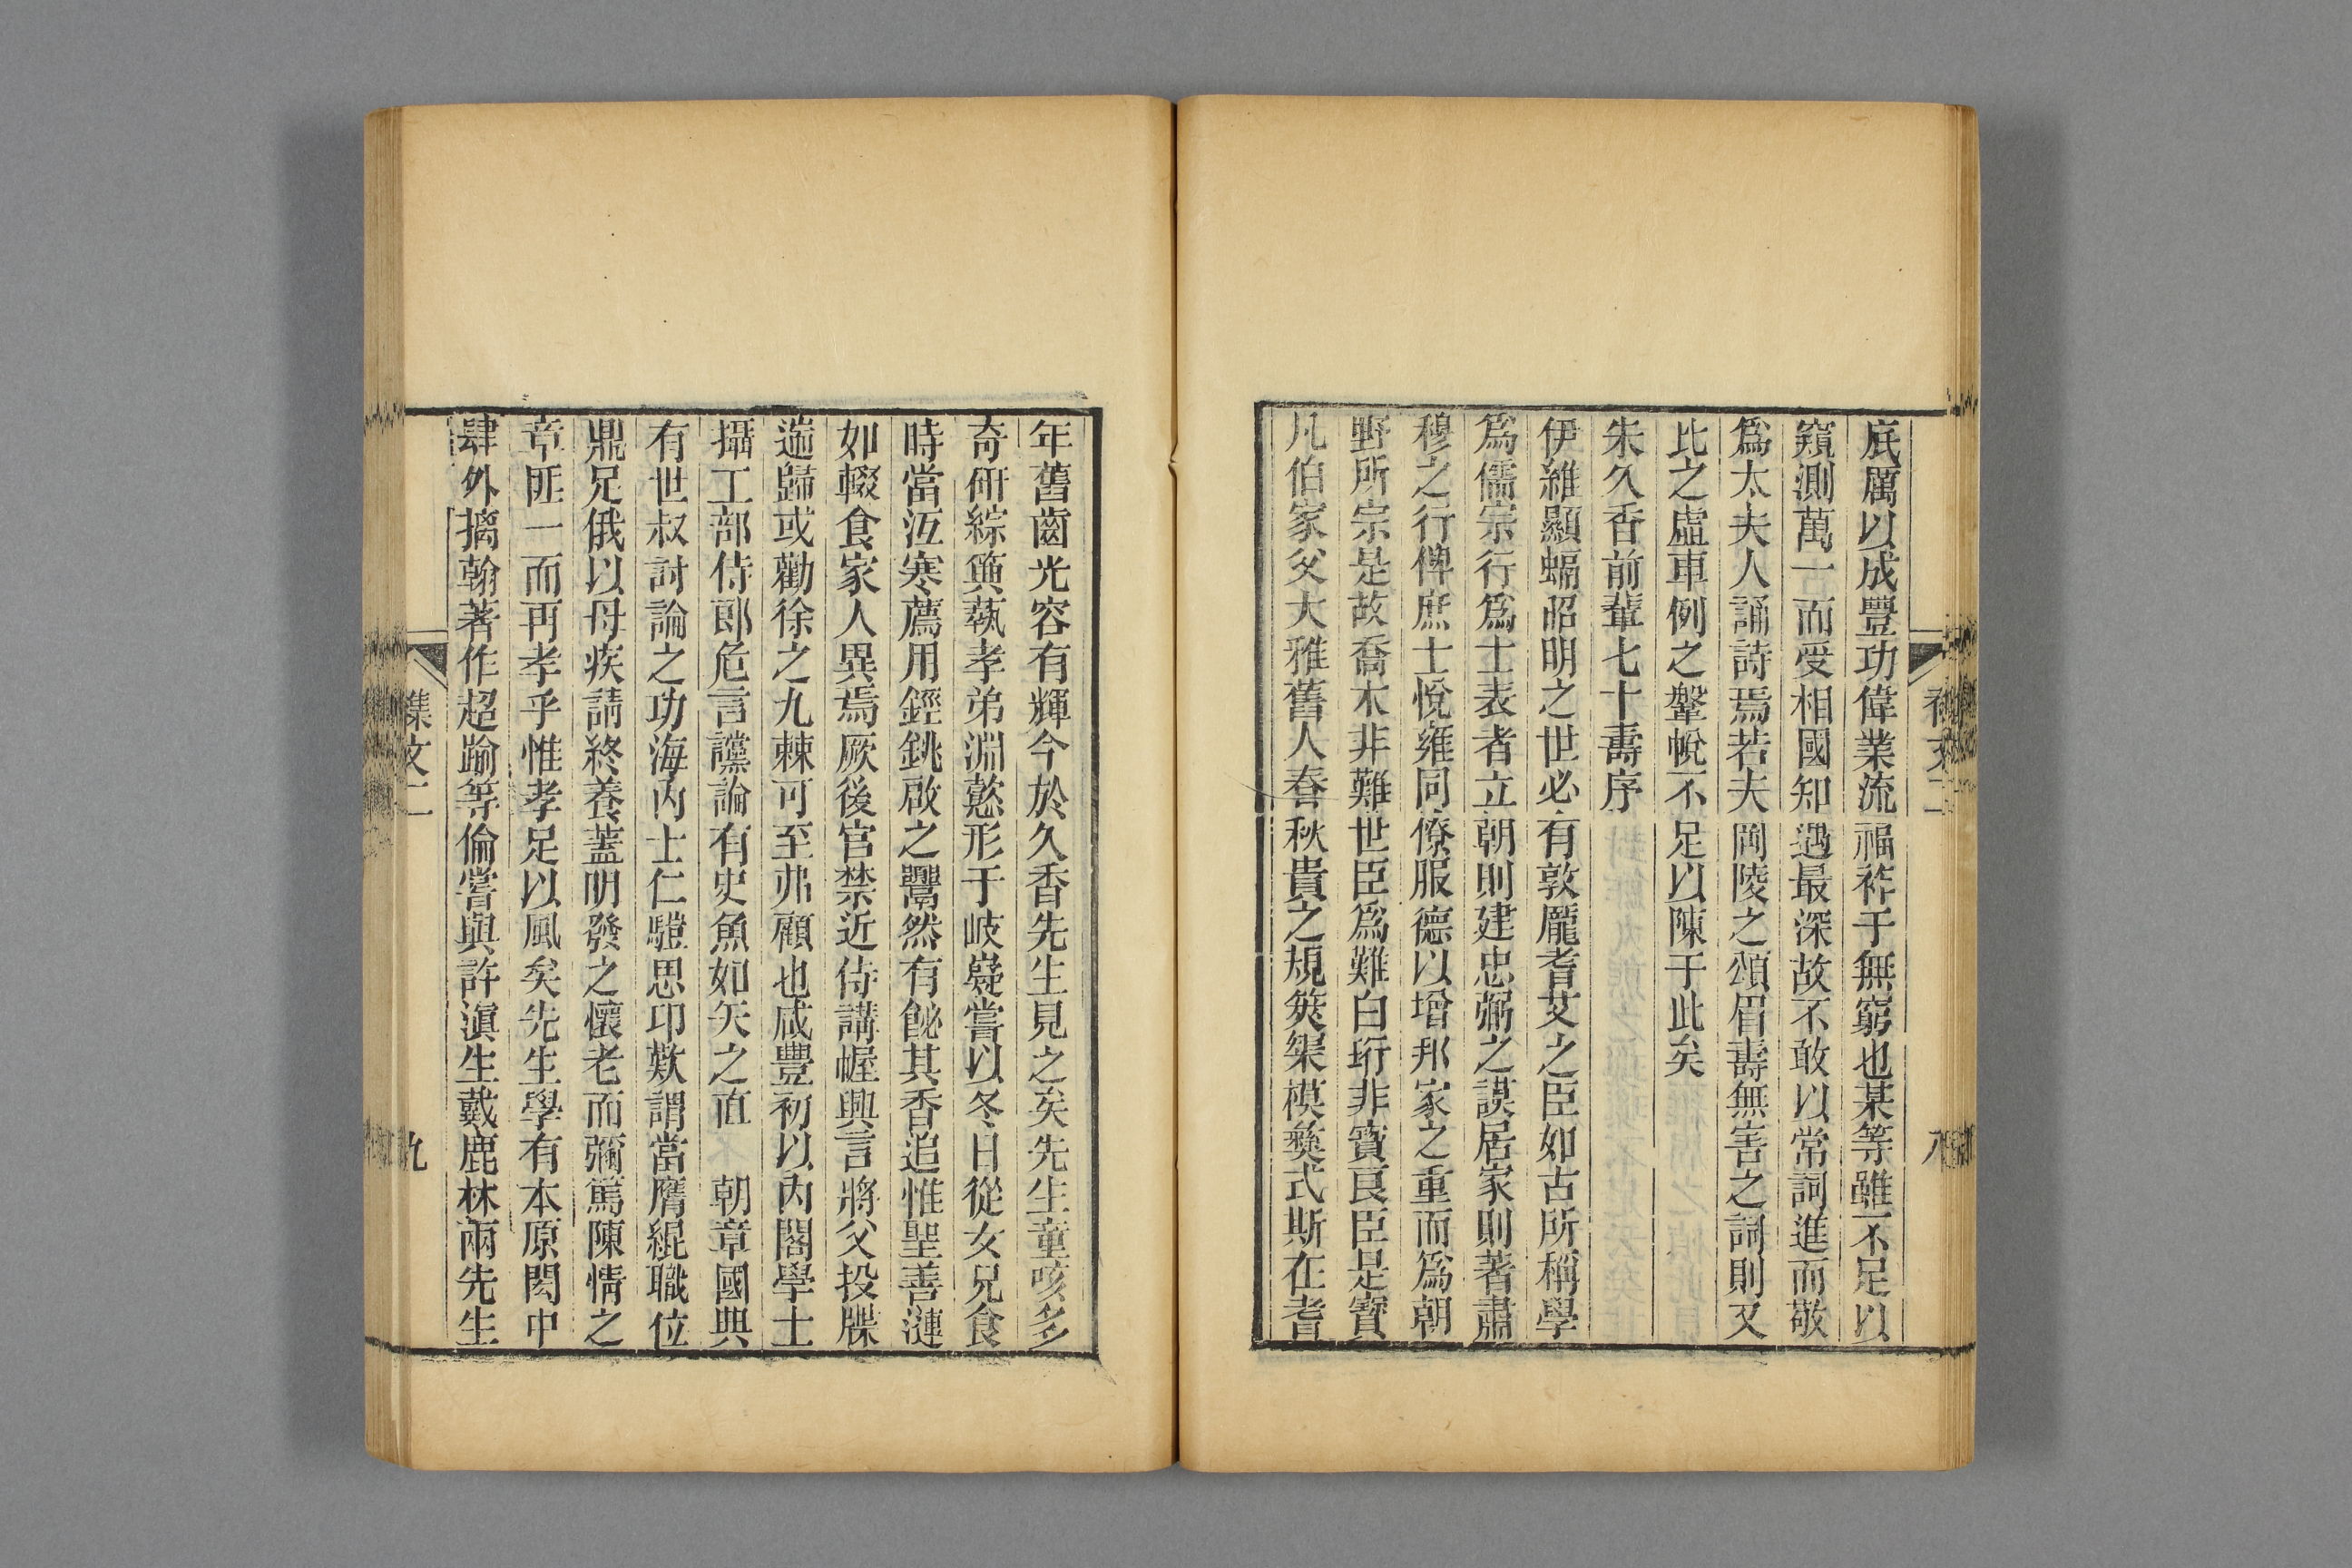 底厲以成豐功偉業流福祚于無窮也某等雖不足以
窺測萬一而受相國知遇最深故不敢以常詞進而敬
爲太夫人誦詩焉若夫岡陵之頌眉壽無害之詞則又
比之虛車例之鞶帨不足以陳于此矣
朱久香前輩七十壽序
伊維顯蝠昭明之世必有敦龐耆艾之臣如古所稱學
爲儒宗行爲士表者立朝則建忠弼之謨居家則著肅
穆之行俾庶士悅雍同僚服德以增邦家之重而爲朝
野所宗是故喬木非難世臣爲難白珩非寶良臣是寶
凡伯家父大雅舊人春秋貴之規筴榘模彝式斯在耆
八
年舊齒光容有輝今於久香先生見之矣先生童咳多
奇研綜典執孝弟淵懿形于岐嶷嘗以冬日從女兄食
時當冱寒薦用鋞銚啟之鬻然有飶其香追惟聖善漣
如輟食家人異焉厥後官禁近侍講幄興言將父投牒
遄歸或勸徐之九棘可至弗顧也咸豐初以內閣學士
攝工部侍郎危言讜論有史魚如矢之直 朝章國典
有世叔討論之功海內士仁驩思印歎謂當膺緄職位
鼎足俄以母疾請終養蓋明發之懷老而彌篤陳情之
章匪一而再孝乎惟孝足以風矣先生學有本原閎中
肆外摛翰著作超踰等倫嘗與許滇生戴鹿林兩先生
集文二
九